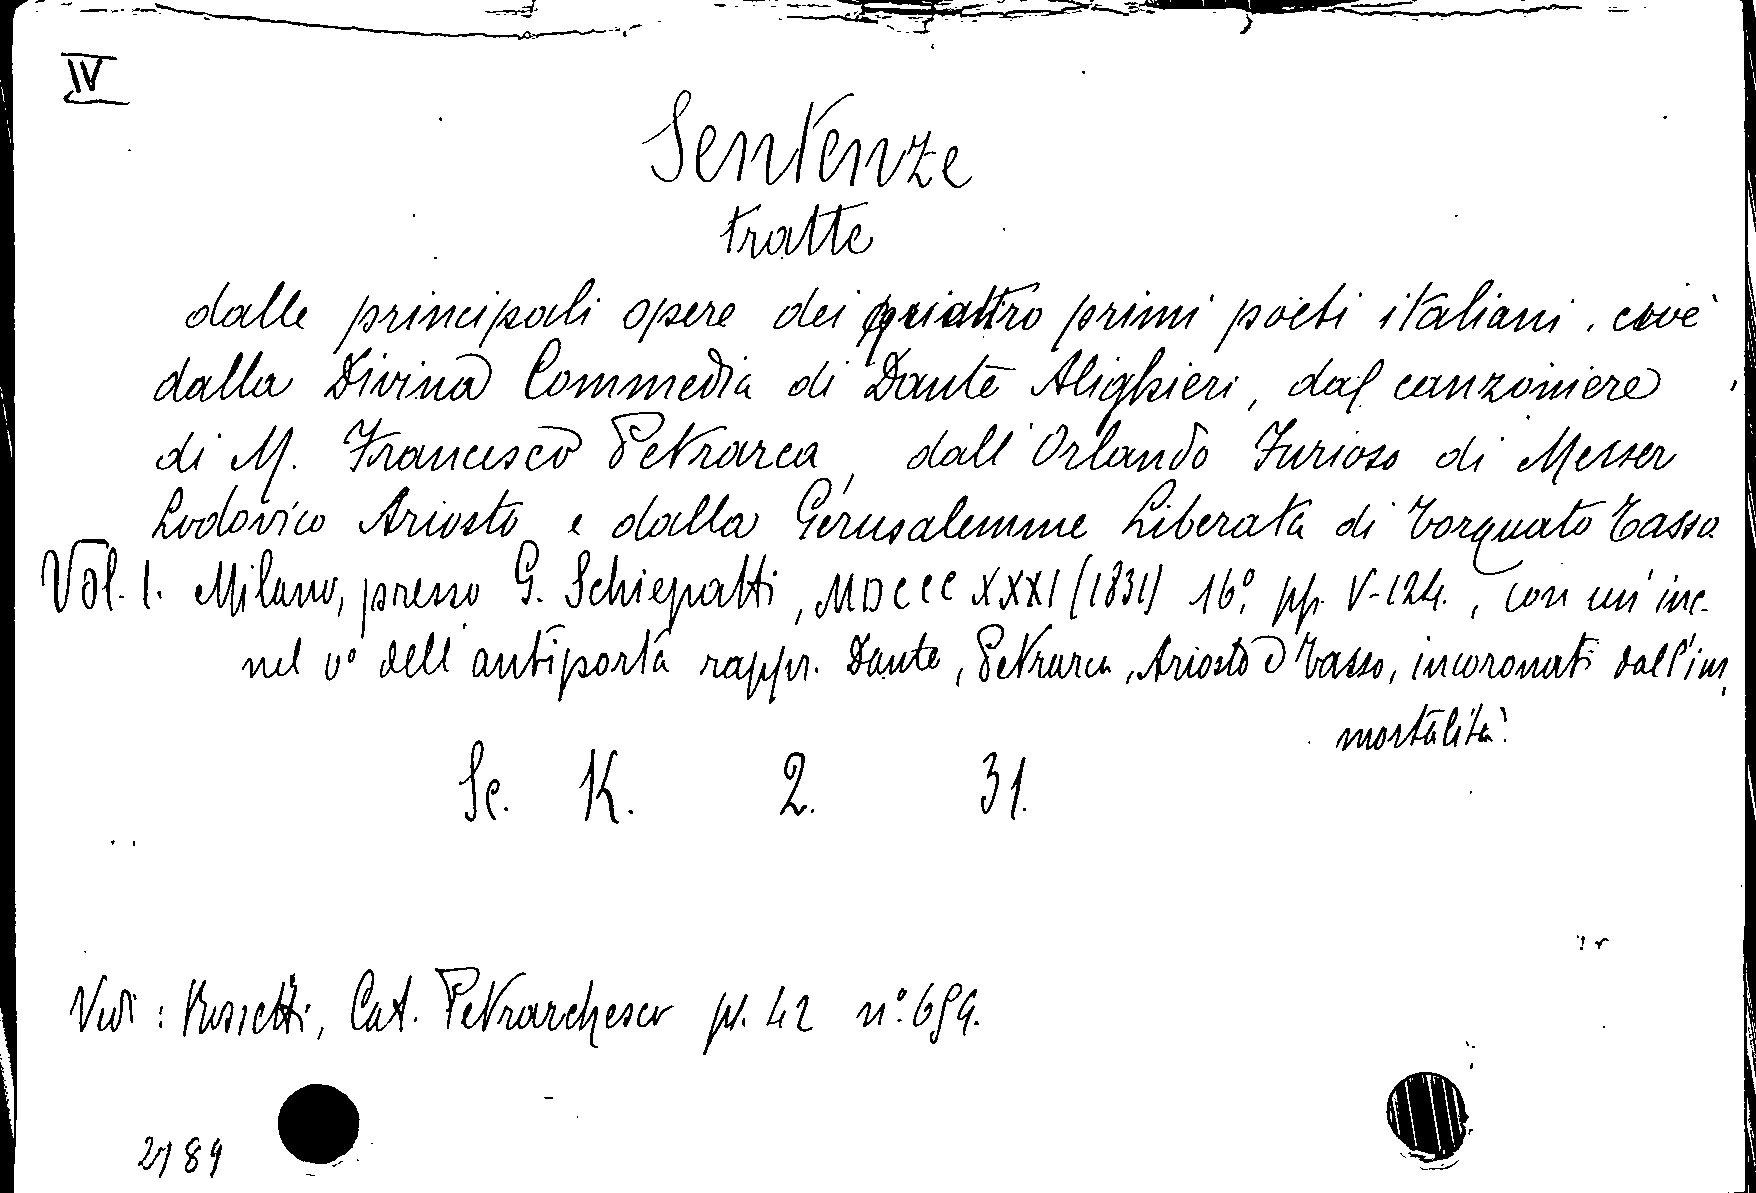 IV
Sentenze
tratte
dalle principali opere dei quattro primi poeti italiani. cioè
dalla Divina Commedia di Dante Alighieri, dal canzoniere
di M. Francesco Petrarca, dall'Orlando Furioso di Messer
Lodovico Ariosto e dalla Gerusalemme Liberata di Torquato Tasso
Vol. 1. Milano, presso G. Schiepatti, MDCCCXXXI (1831) 16°, pp. V-124., con un'inc.
nel v° dell'antiporta rappr. Dante, Petrarca, Ariosto e Tasso, incoronati dall'im
mortalità.
Sc. K. 2. 31.
Vedi: Rossetti, Cat. Petrarchesco p. 42 n°.
2189